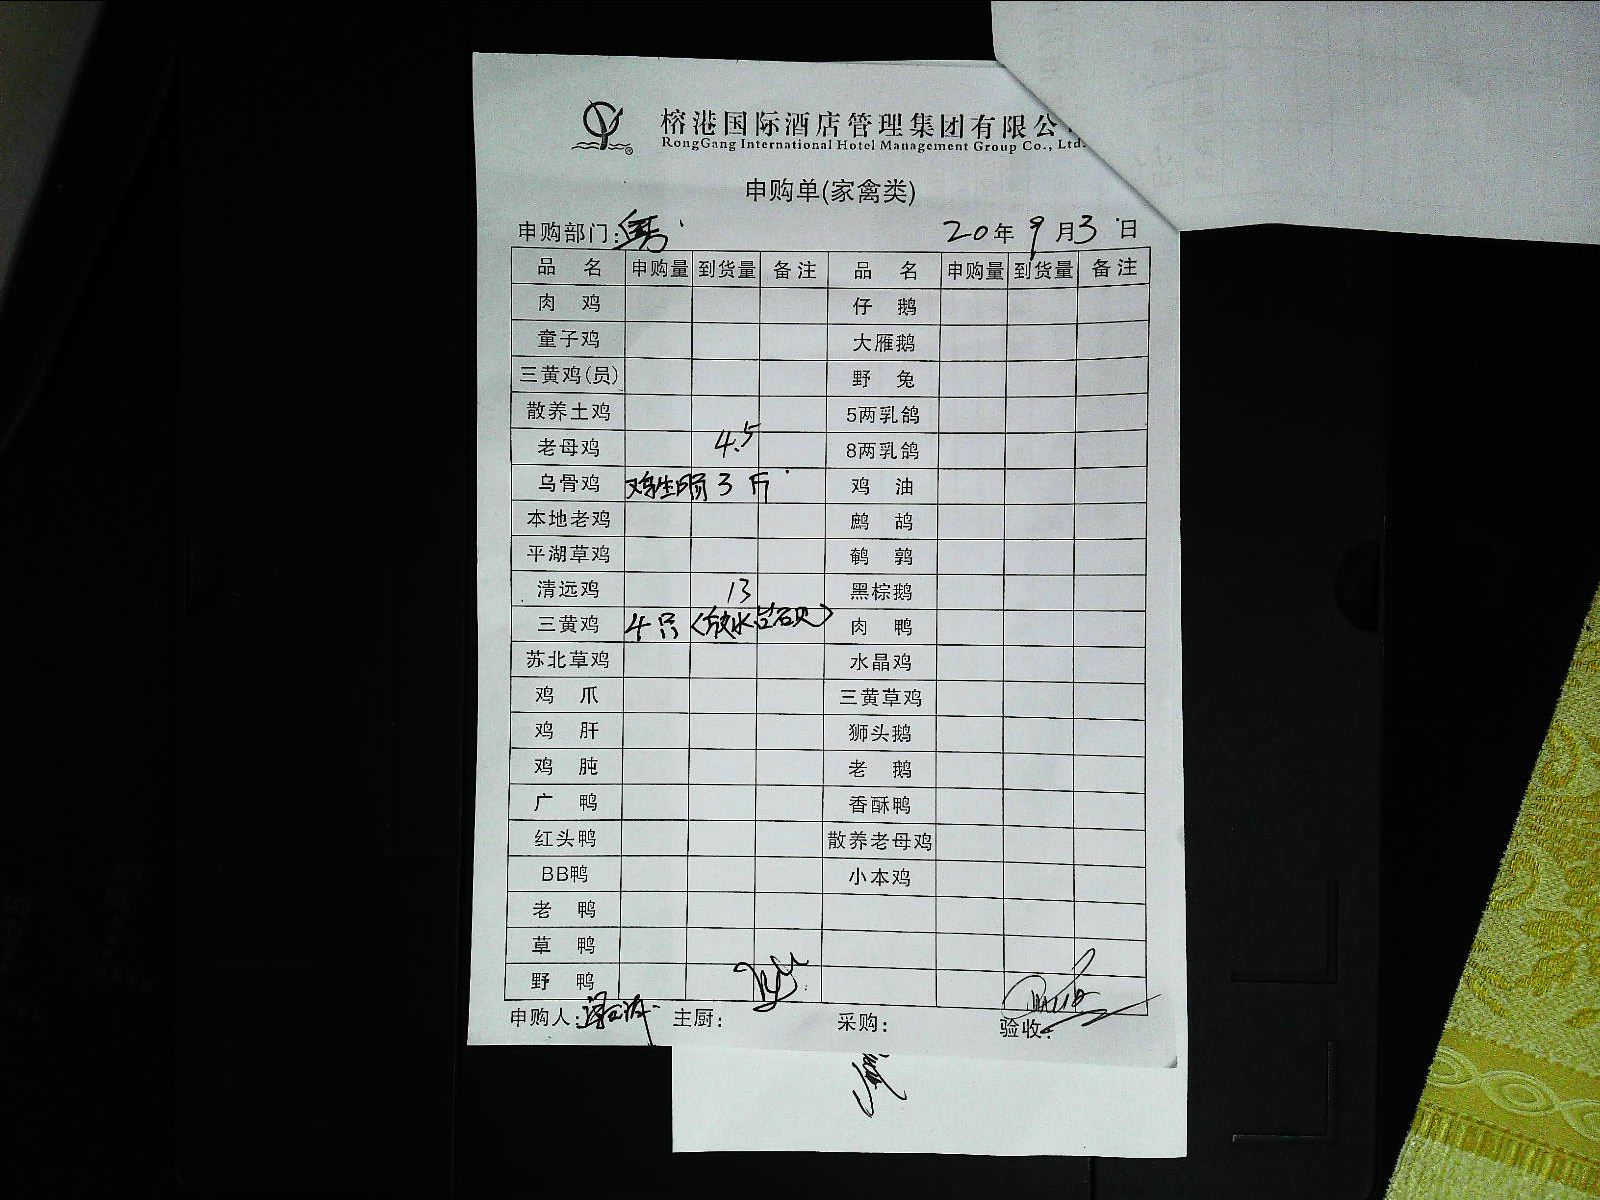 榕港国际酒店管理集团有限公
RongGang International Hotel Management Group Co., Ltd.
申购单(家禽类)
申购部门: 20年9月3日
品 名 申购量 到货量 备注 品 名 申购量 到货量 备注
肉 鸡 仔 鹅
童子鸡 大雁鹅
三黄鸡(员) 野 兔
散养土鸡 5两乳鸽
老母鸡 4.5 8两乳鸽
乌骨鸡 鸡生肠 3 斤 鸡 油
本地老鸡 鹧 鸪
平湖草鸡 鹌 鹑
清远鸡 13 黑棕鹅
三黄鸡 4只 肉 鸭
苏北草鸡 水晶鸡
鸡 爪 三黄草鸡
鸡 肝 狮头鹅
鸡 肫 老 鹅
广 鸭 香酥鸭
红头鸭 散养老母鸡
BB鸭 小本鸡
老 鸭
草 鸭
野 鸭
申购人: 主厨: 采购: 验收: